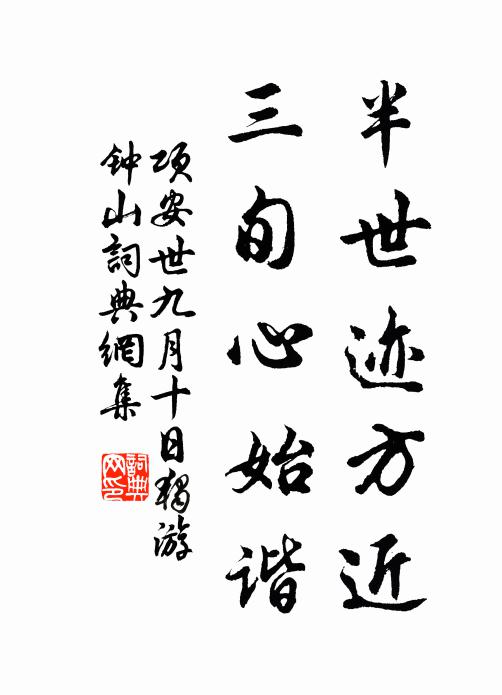 半世迹方近
三旬心始谐
项安世九月十日独游
钟山詞典網集
詞典網印